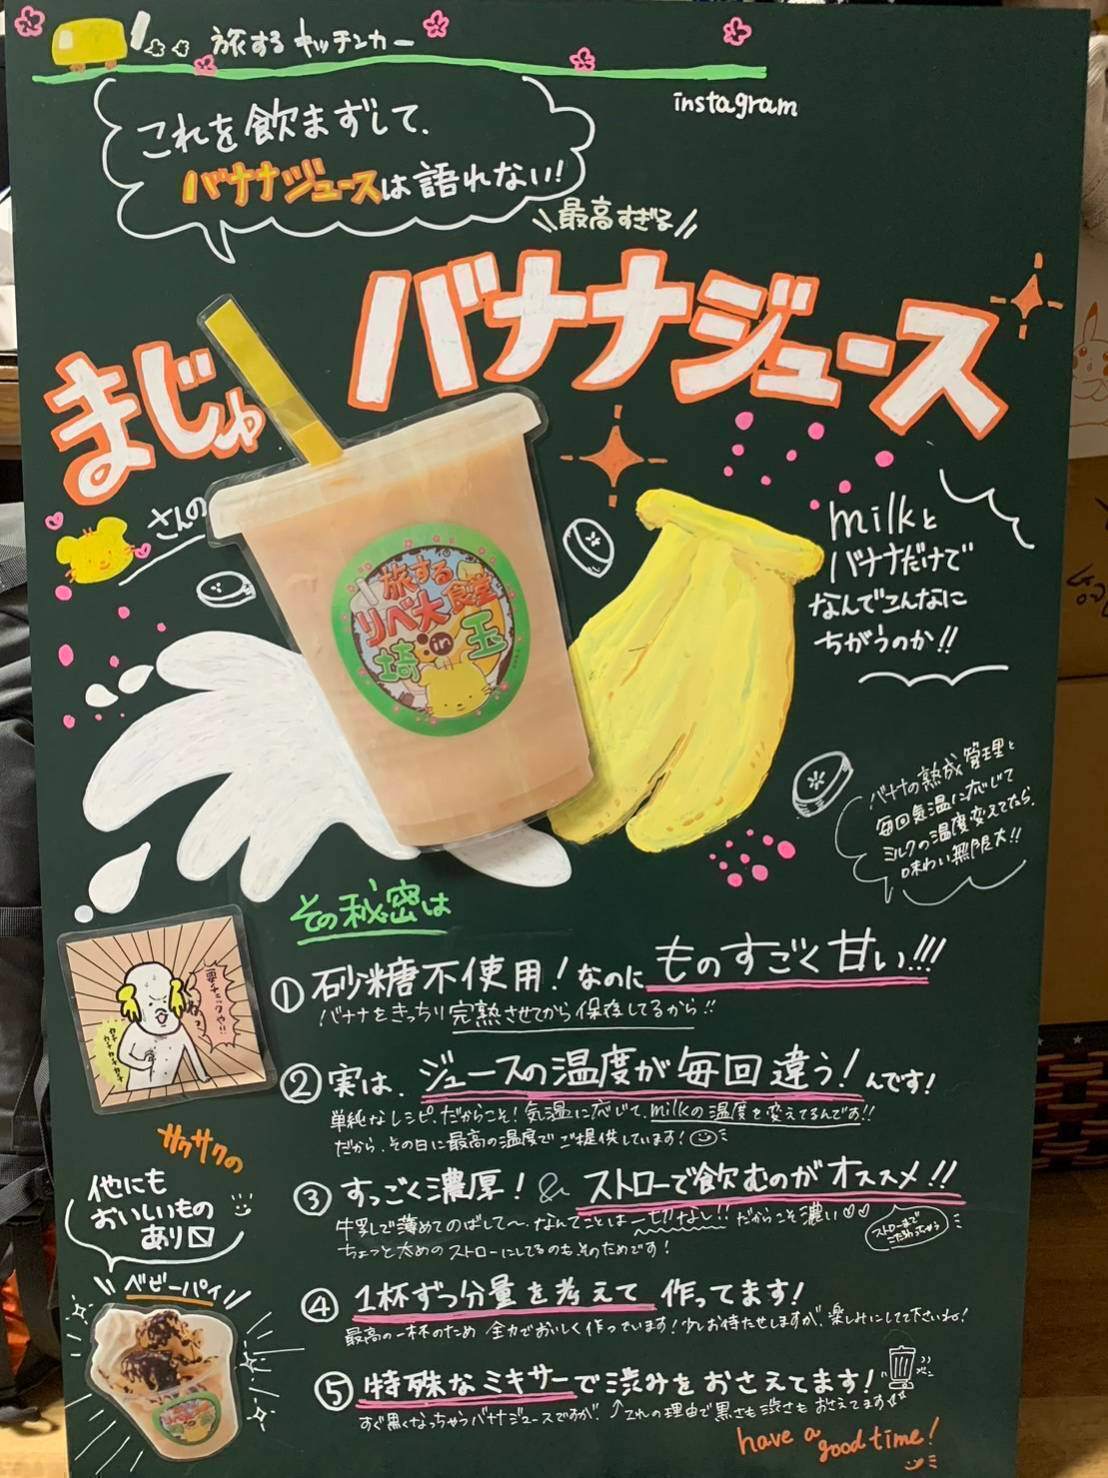 旅するキッチンカー
instagram
これを飲まずして、
バナナジュースは語れない!
最高すぎる
まじゅ
さんの
バナナジュース
旅する
リベ大食堂
in
埼玉
milkと
バナナだけで
なんでこんなに
ちがうのか!!
バナナの熟成管理と
毎回気温に応じて
ミルクの温度変えてたら、
味わい無限大!!
その秘密は
①砂糖不使用!なのにものすごく甘い!!!
バナナをきっちり完熟させてから保存してるから!!
②実は、ジュースの温度が毎回違う!んです!
単純なレシピ、だからこそ!気温に応じて、milkの温度を変えてるんです!!
だから、その日に最高の温度でご提供しています!
③すっごく濃厚!&ストローで飲むのがオススメ!!
牛乳で薄めてのばして〜、なんてことは一切なし!!だからこそ濃い♡♡
ちょっと太めのストローにしてるのもそのためです!
ストローまで
こだわっちゃう
④1杯ずつ分量を考えて作ってます!
最高の一杯のため全力でおいしく作っています!少しお待たせしますが、楽しみにしてて下さいね!
⑤特殊なミキサーで渋みをおさえてます!
すぐ黒くなっちゃうバナナジュースですが、↑これの理由で黒さも渋さもおさえてます
have a
good time!
サクサクの
他にも
おいしいもの
あり〼
ベビーパイ